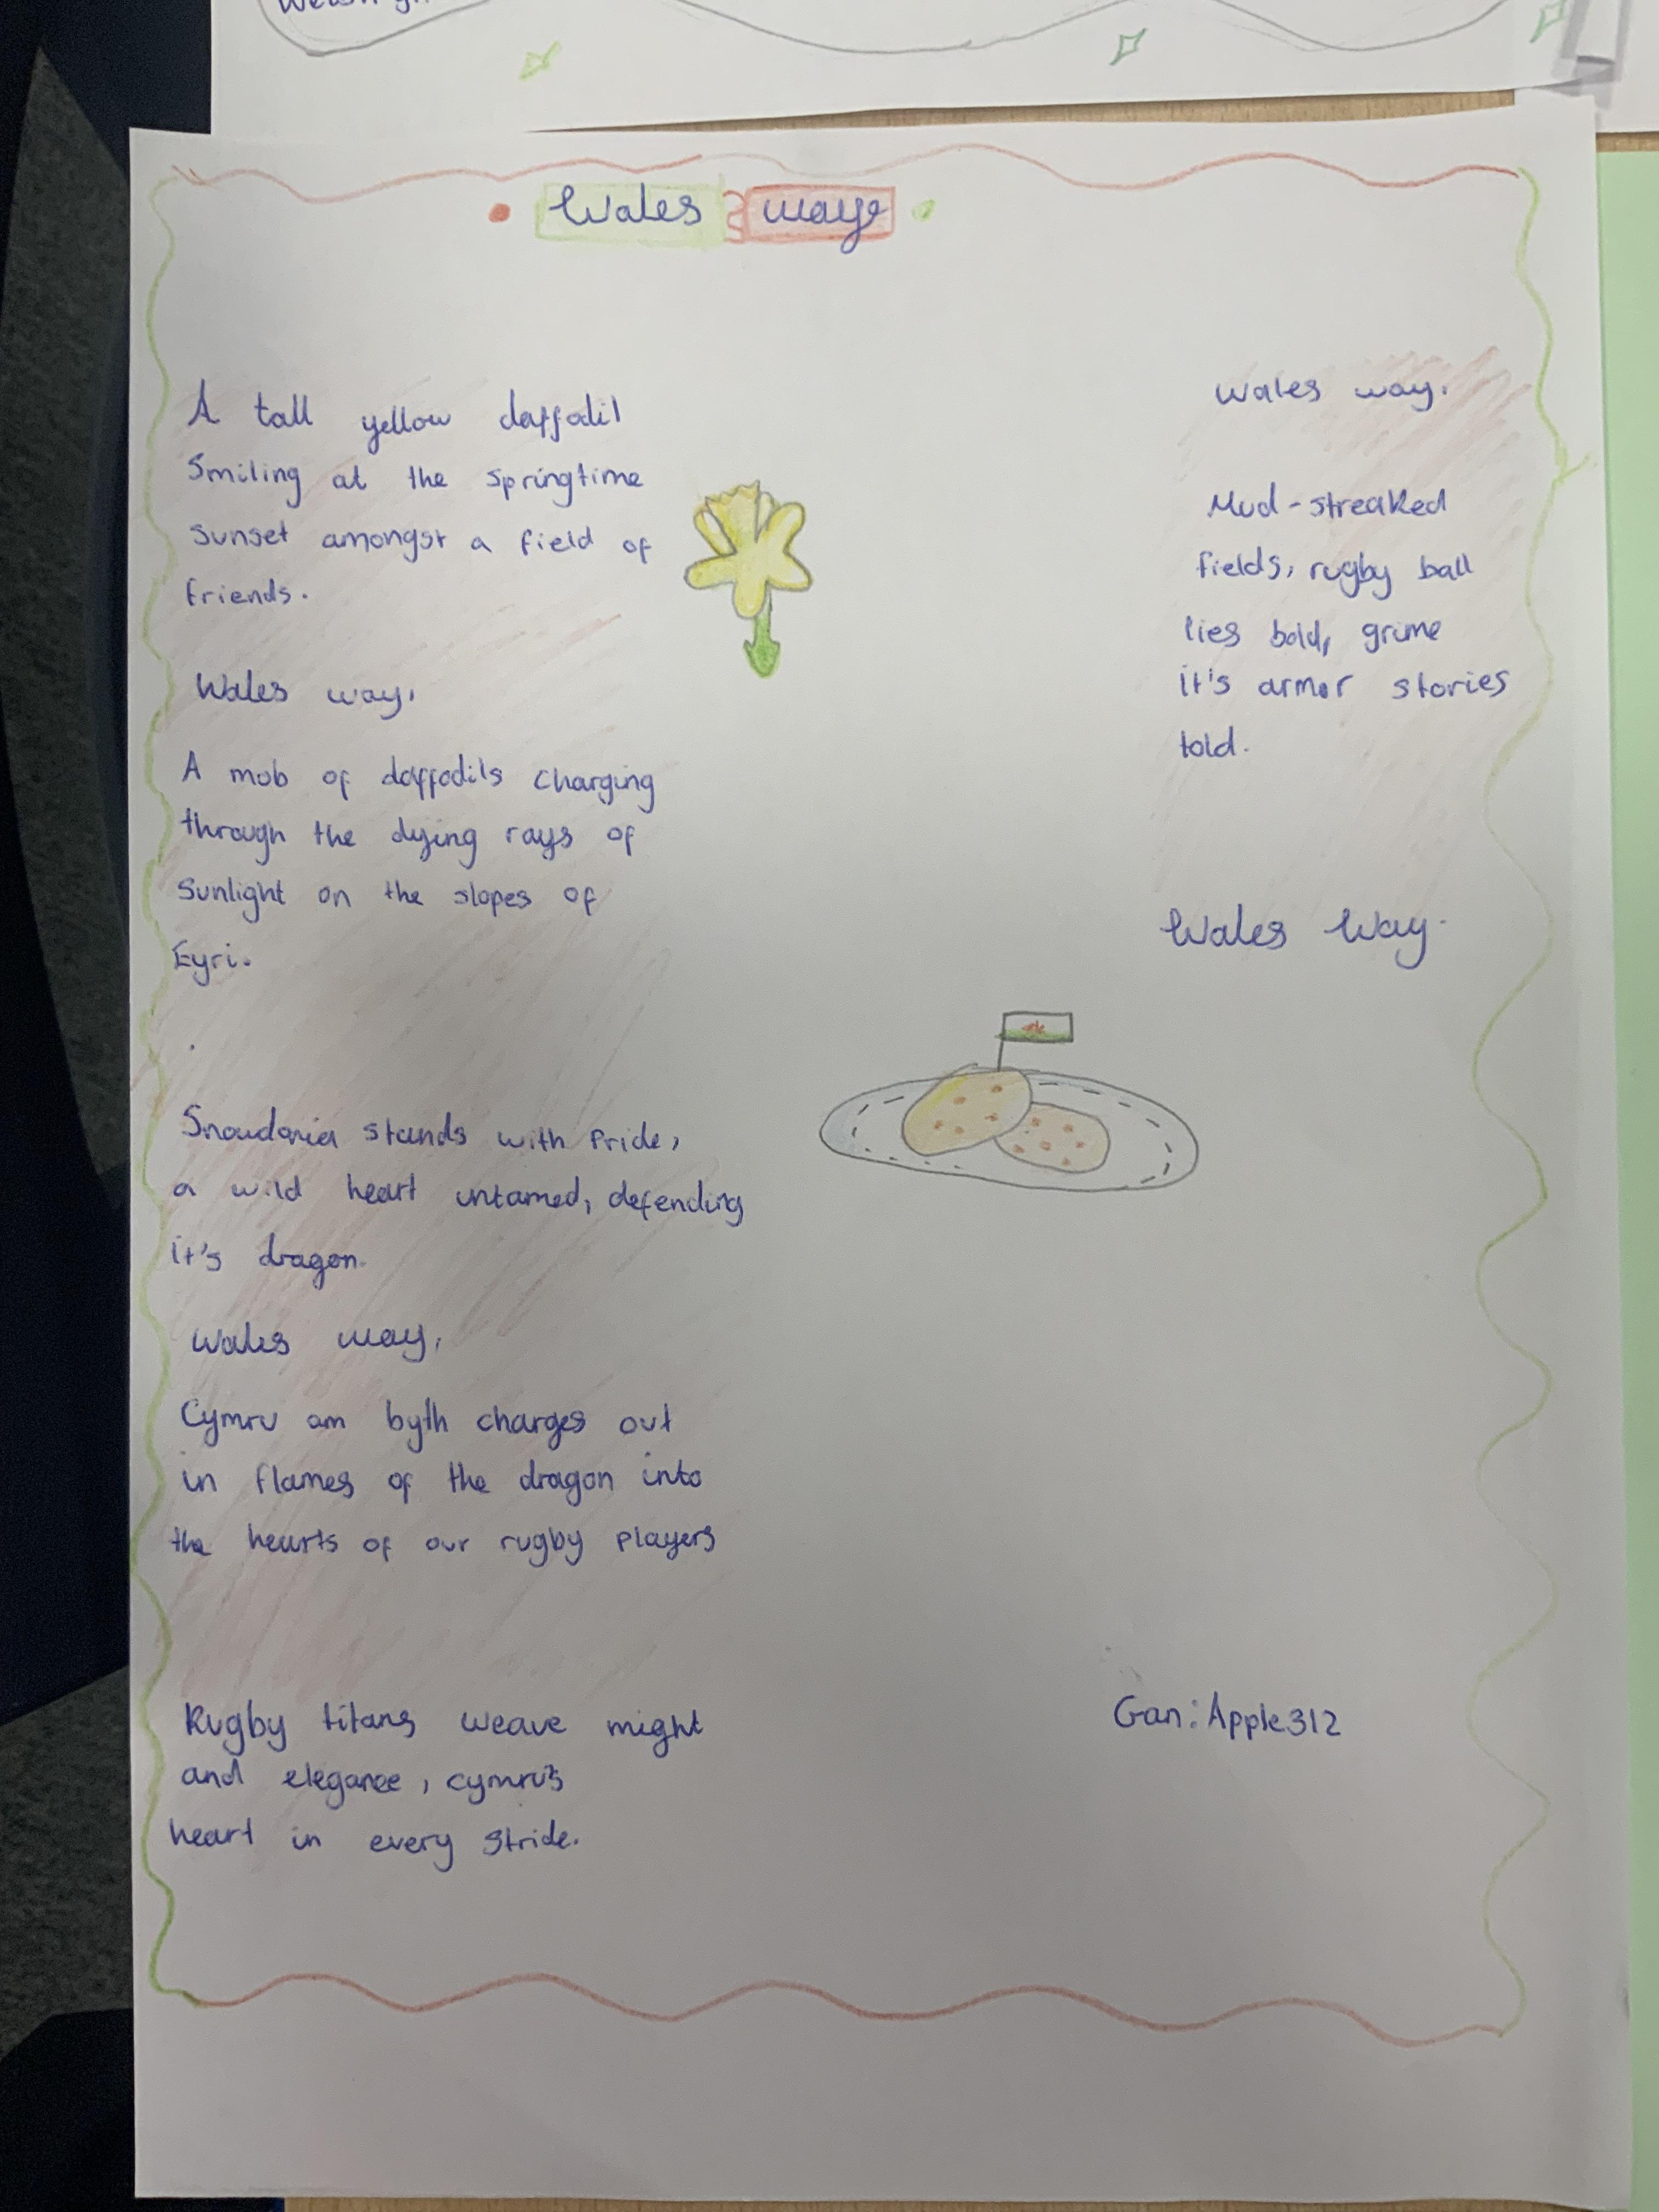 Wales way
A tall yellow daffodil
Smiling at the springtime
sunset amongst a field of
friends.
Wales way.
A mob of daffodils charging
through the dying rays of
Sunlight on the slopes of
Eyri.
Snowdonia stands with pride,
a wild heart untamed, defending
it's dragon.
Wales way.
Cymru am byth charges out
in flames of the dragon into
the hearts of our rugby players
Rugby titans weave might
and elegance, cymru's
heart in every stride.
Wales way.
Mud-streaked
fields, rugby ball
lies bold, grime
it's armor stories
told.
Wales Way.
Gan: Apple312